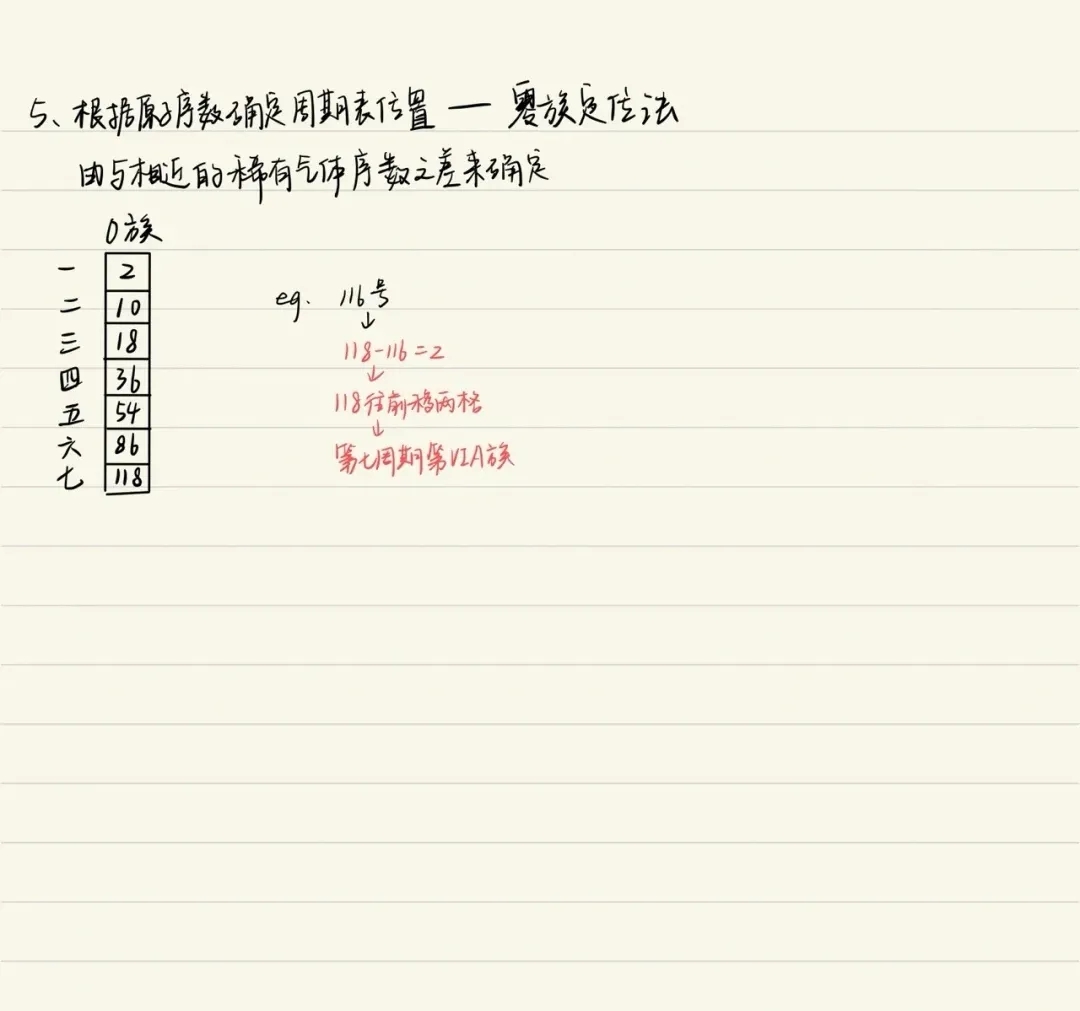 5、根据原子序数确定周期表位置 — 零族定位法
由与相近的稀有气体序数之差来确定
0族
一 2
二 10
三 18
四 36
五 54
六 86
七 118
eg. 116号
↓
118-116=2
↓
118往前移两格
↓
第七周期第VIA族